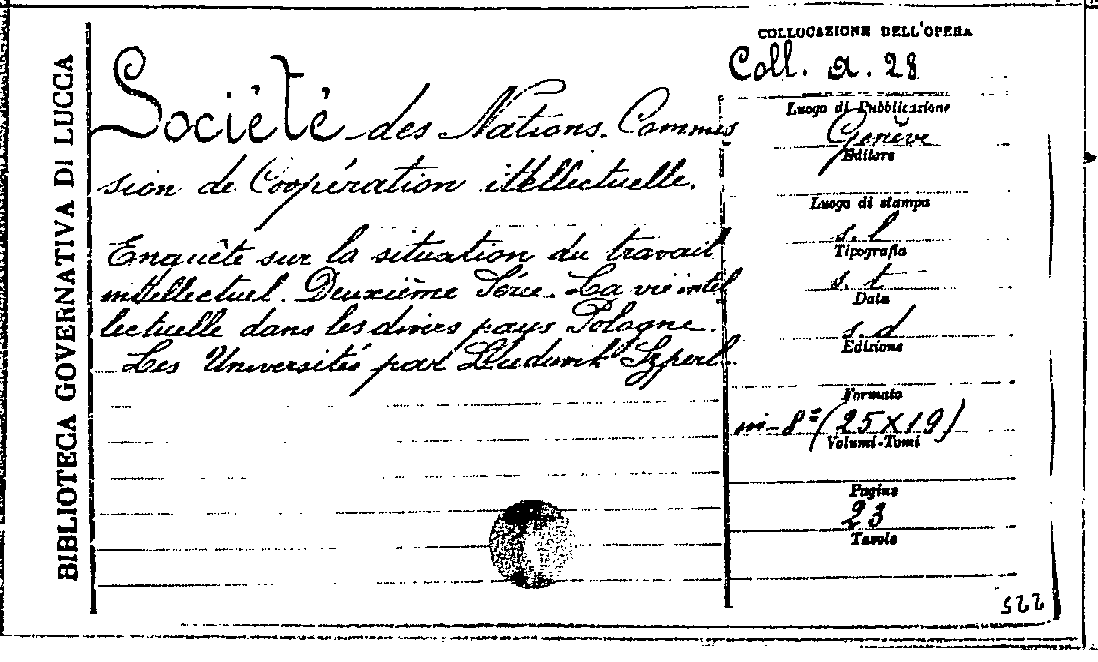 BIBLIOTECA GOVERNATIVA DI LUCCA
Société des Nations. Commis
sion de Coopération itellectuelle.
Enquête sur la situation du travail
intellectuel. Deuxième Série. La vie intel
lectuelle dans les divers pays Pologne.
Les Universités par Ludwik Szperl.
COLLOCAZIONE DELL'OPERA
Coll. a. 28
Luogo di Pubblicazione
Genève
Editore
Luogo di stampa
s. l
Tipografia
s. t
Data
s. d
Edizione
Formato
in-8º (25×19)
Volumi-Tomi
Pagine
23
Tavole
522